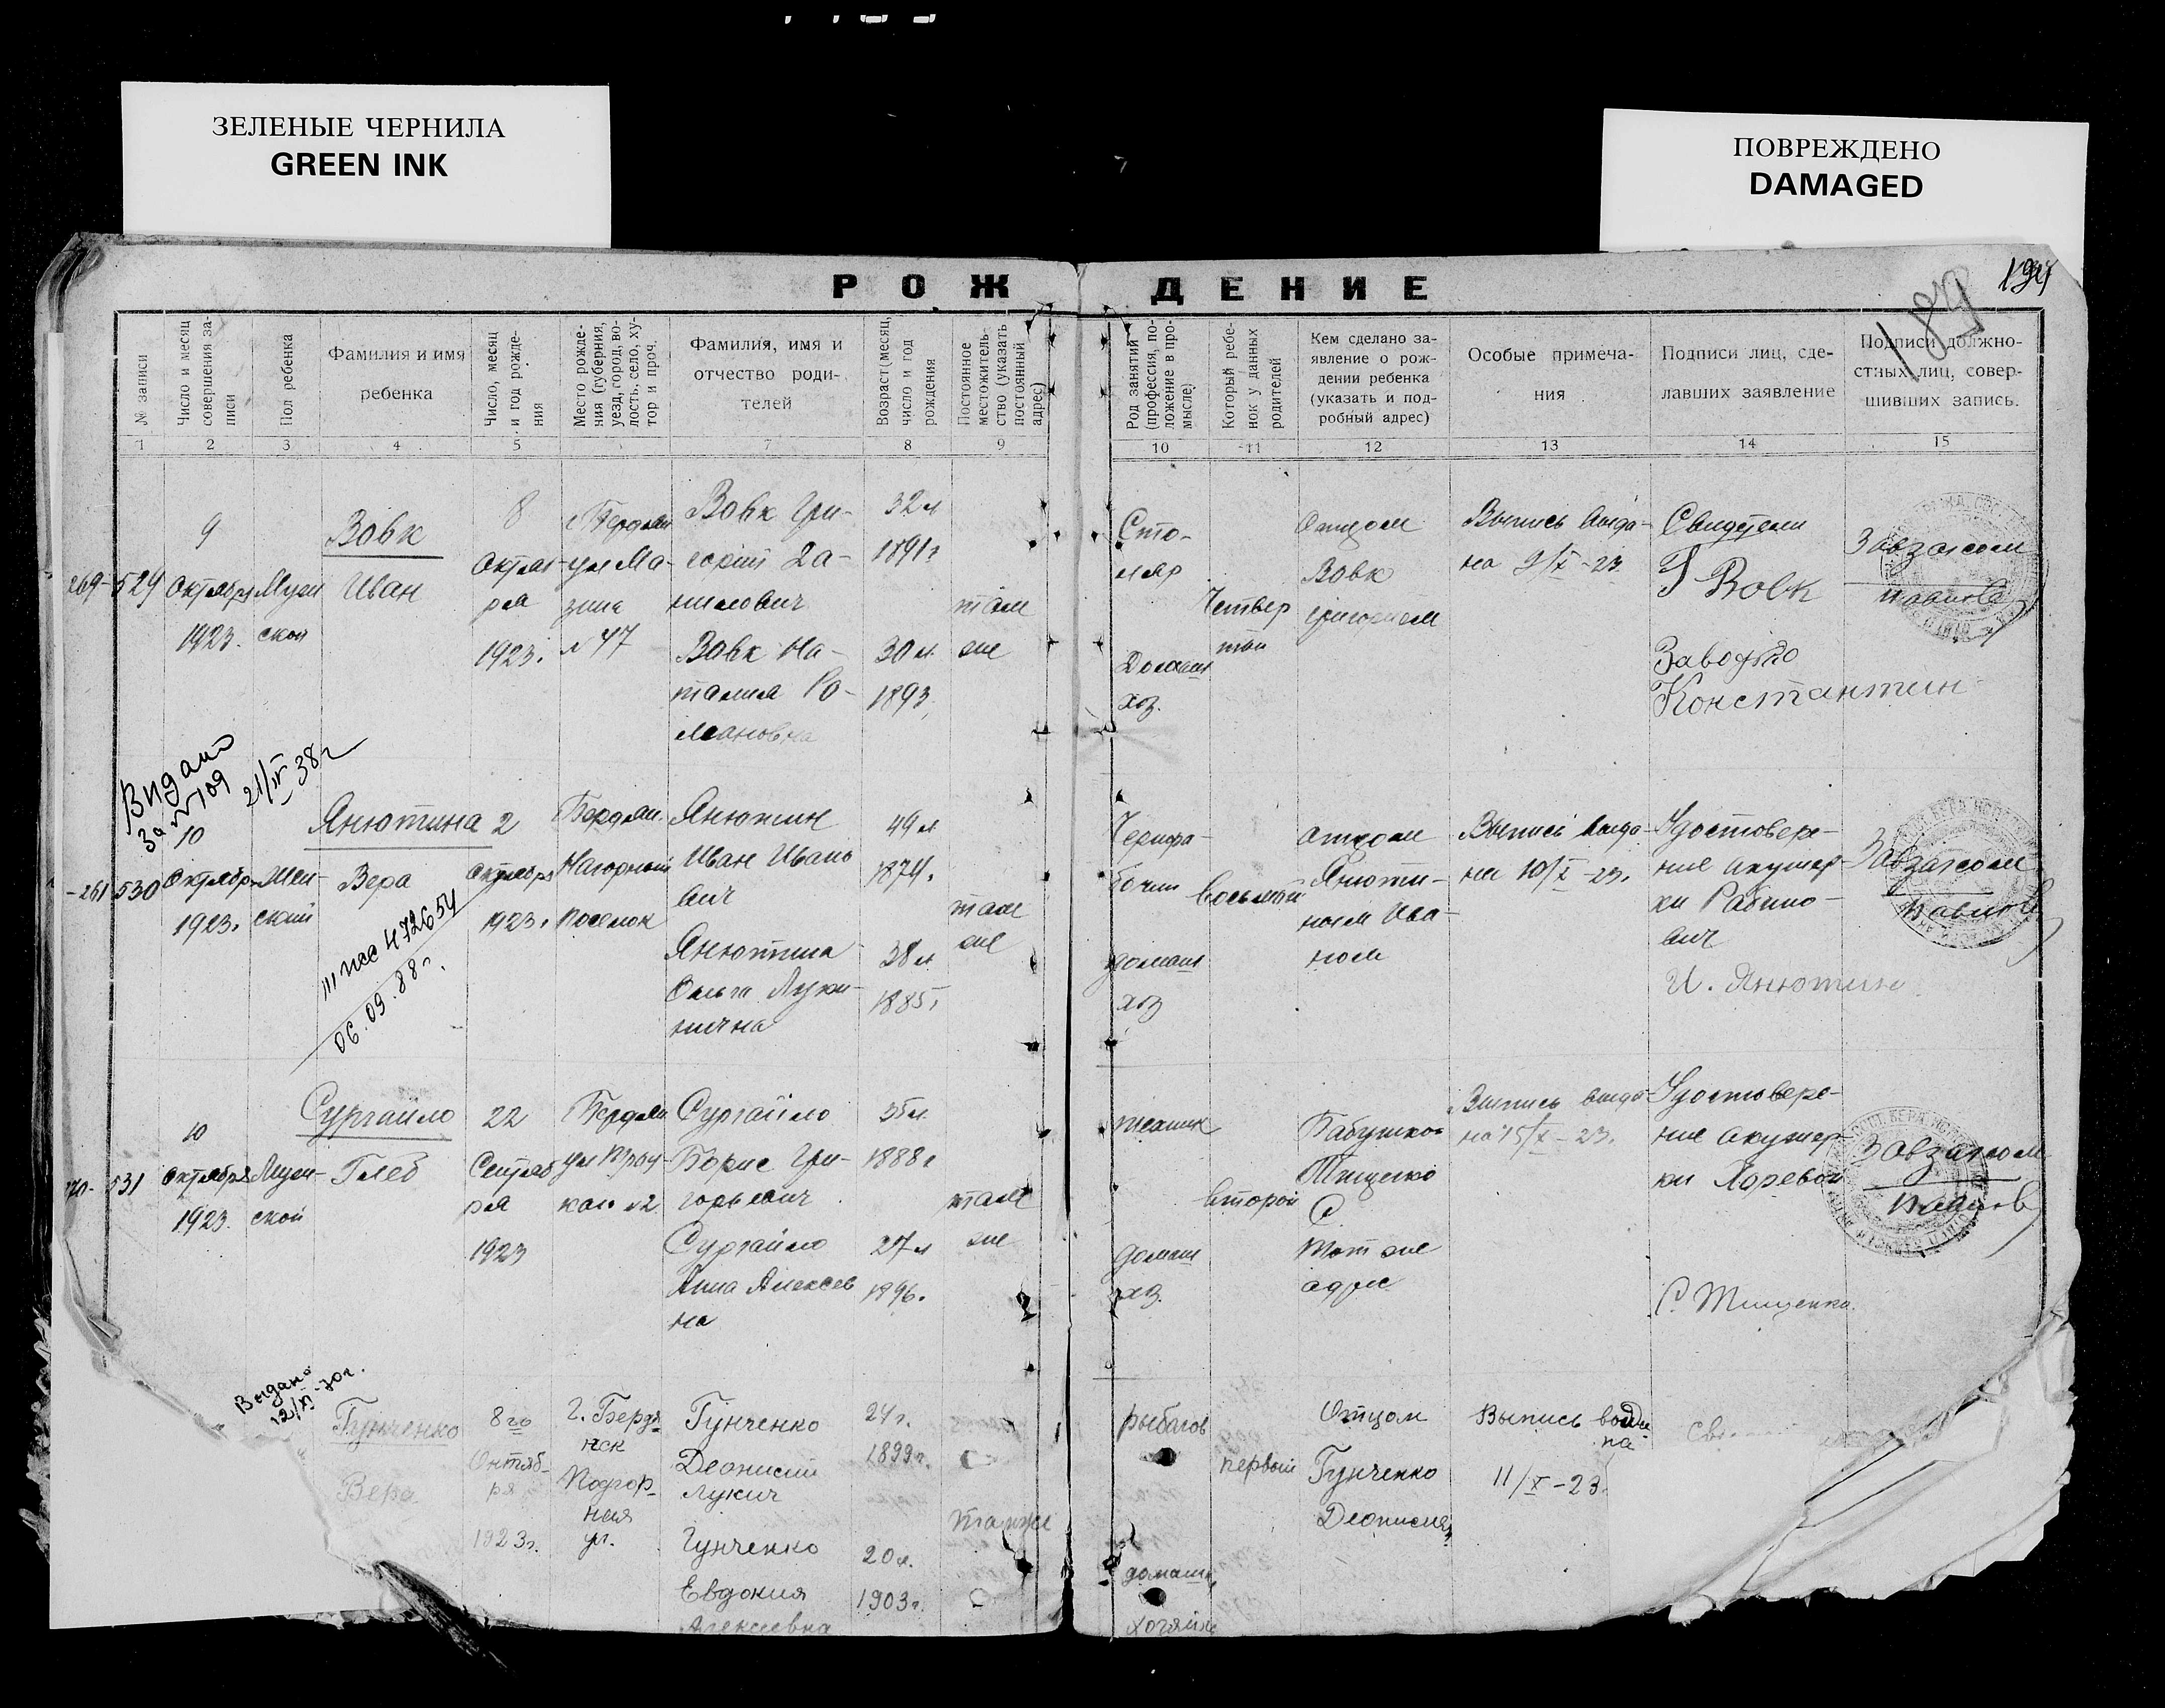 ЗЕЛЕНЫЕ ЧЕРНИЛА
GREEN INK
ПОВРЕЖДЕНО
DAMAGED
РОЖДЕНИЕ
189
№ записи
Число и месяц совершения записи
Пол ребенка
Фамилия и имя ребенка
Число, месяц и год рождения
Место рождения (губерния, уезд, город, волость, село, хутор и проч.
Фамилия, имя и отчество родителей
Возраст (месяц, число и год рождения
Постоянное местожительство (указать постоянный адрес)
Род занятий (профессия, положение в промысле)
Который ребенок у данных родителей
Кем сделано заявление о рождении ребенка (указать и подробный адрес)
Особые примечания
Подписи лиц, сделавших заявление
Подписи должностных лиц, совершивших запись.
1 2 3 4 5 6 7 8 9 10 11 12 13 14 15
269- 529
9
Октября
1923.
Мужской
Вовк
Иван
8
Октября
1923.
№ 47
Вовк Григорий Данилович
32 л
1891 г
Вовк Наталия Романовна
30 л
1893
там же
Столяр
Домашн
хоз.
Четвертый
Отцом
Вовк
Григорием
Выпись выдана 9/X-23
Г Вовк
Константин
Завзагсом
Видано
За №109
21/IV 38 г
-261 530
10
Октября
1923.
Женский
Янютина
Вера
III пес № 472654
06.09.88 г.
2
Октября
1923.
Бердян.
Нагорный
поселок
Янютин
Иван Иванович
49 л
1874.
Янютина
Ольга Лукинична
38 л
1885 г
там же
Чернорабочий
домашн
хоз
восьмой
Отцом
Янютиным Иваном
Выпись выдана 10/X-23.
Удостоверение акушерки Рабинович
И. Янютин
Завзагсом
Павлов
270- 531
10
Октября
1923.
Мужской
Сургайло
Глеб
22
Сентября
1923
Бердян
Сургайло
Борис Григорьевич
35 л
1888 г
Сургайло
Анна Алексеевна
27 л
1896.
там же
домашн
хоз.
второй
Бабушкой
Тищенко
С.
Тот же
адрес
Выпись выдана 15/X-23.
Удостоверение акушерки
С. Тищенко
Завзагсом
Павлов
Выдано
12/XI-70 г.
Гунченко
Вера
8го
Октября
1923 г.
г. Бердянск
Подгорная
ул.
Гунченко
Деонисий
Лукич
24 г.
1899 г.
Гунченко
Евдокия
Алексеевна
20 л.
1903 г.
там же
рыболов
домашн.
хозяйс
первый
Отцом
Гунченко
Деонисием
Выпись выдана
11/X-23.